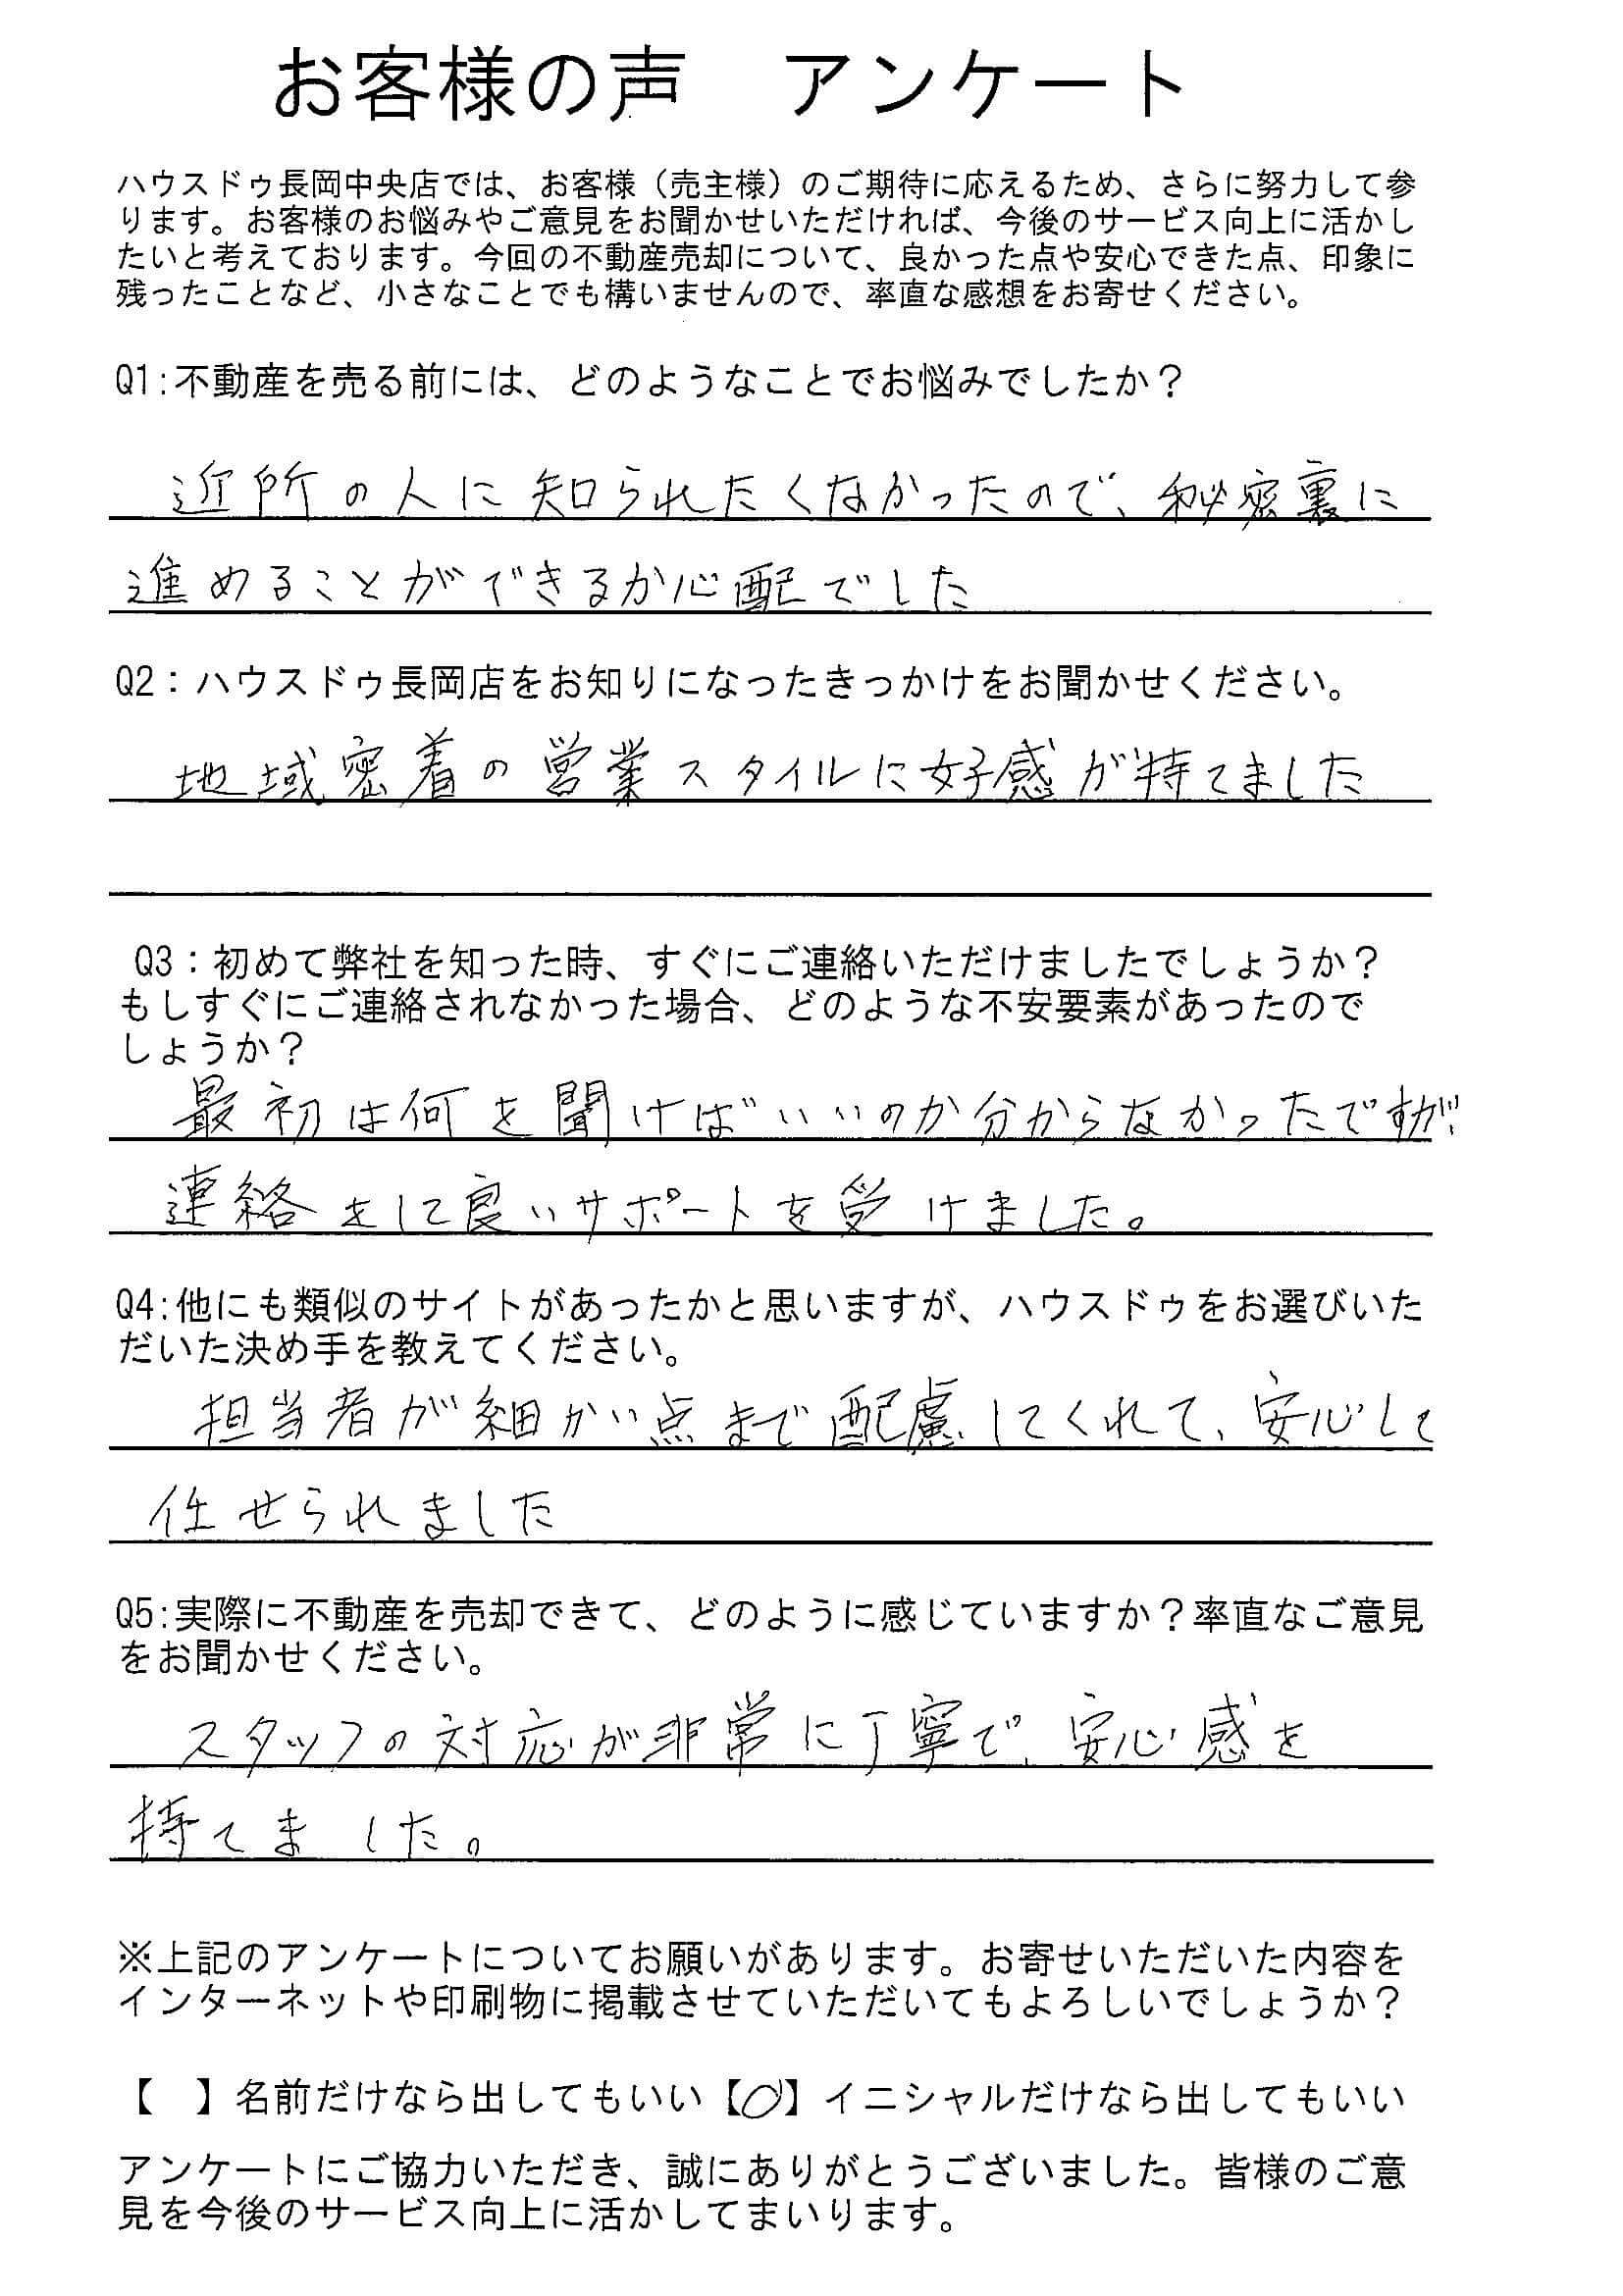 お客様の声　アンケート
ハウスドゥ長岡中央店では、お客様（売主様）のご期待に応えるため、さらに努力して参
ります。お客様のお悩みやご意見をお聞かせいただければ、今後のサービス向上に活かし
たいと考えております。今回の不動産売却について、良かった点や安心できた点、印象に
残ったことなど、小さなことでも構いませんので、率直な感想をお寄せください。
Q1:不動産を売る前には、どのようなことでお悩みでしたか？
近所の人に知られたくなかったので、秘密裏に
進めることができるか心配でした
Q2：ハウスドゥ長岡店をお知りになったきっかけをお聞かせください。
地域密着の営業スタイルに好感が持てました
Q3：初めて弊社を知った時、すぐにご連絡いただけましたでしょうか？
もしすぐにご連絡されなかった場合、どのような不安要素があったので
しょうか？
最初は何を聞けばいいのか分からなかったですが、
連絡をして良いサポートを受けました。
Q4:他にも類似のサイトがあったかと思いますが、ハウスドゥをお選びいた
だいた決め手を教えてください。
担当者が細かい点まで配慮してくれて、安心して
任せられました
Q5:実際に不動産を売却できて、どのように感じていますか？率直なご意見
をお聞かせください。
スタッフの対応が非常に丁寧で、安心感を
持てました。
※上記のアンケートについてお願いがあります。お寄せいただいた内容を
インターネットや印刷物に掲載させていただいてもよろしいでしょうか？
【　】名前だけなら出してもいい【○】イニシャルだけなら出してもいい
アンケートにご協力いただき、誠にありがとうございました。皆様のご意
見を今後のサービス向上に活かしてまいります。